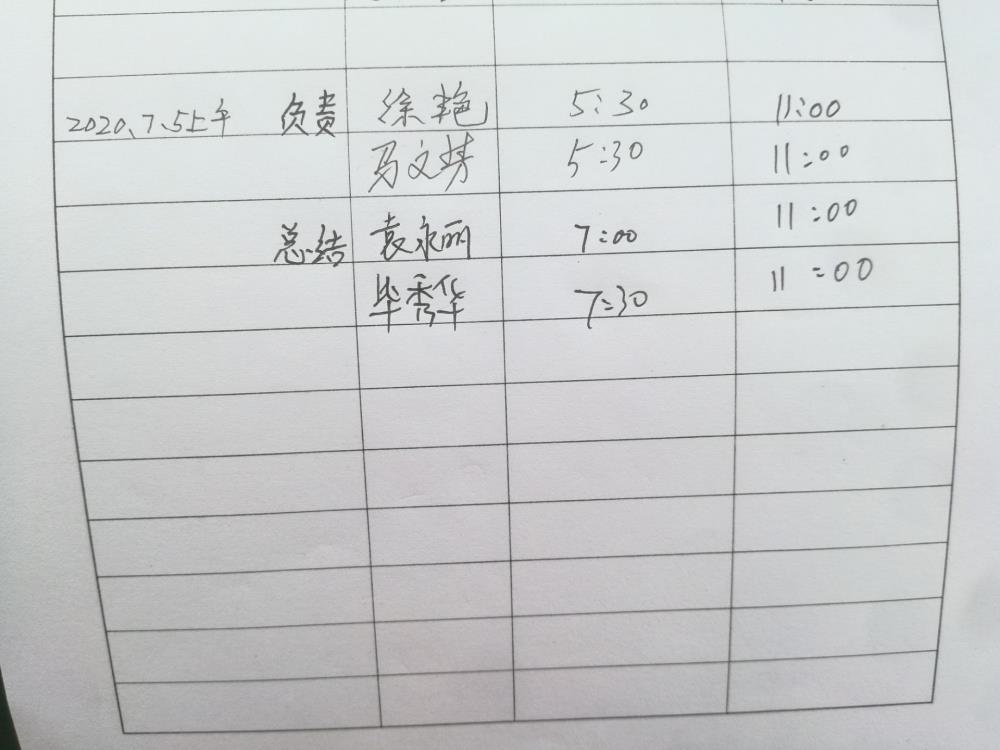 2020、7、5上午 负责 徐艳 5:30 11:00
马文芳 5:30 11:00
总结 袁永丽 7:00 11:00
毕秀华 7:30 11:00